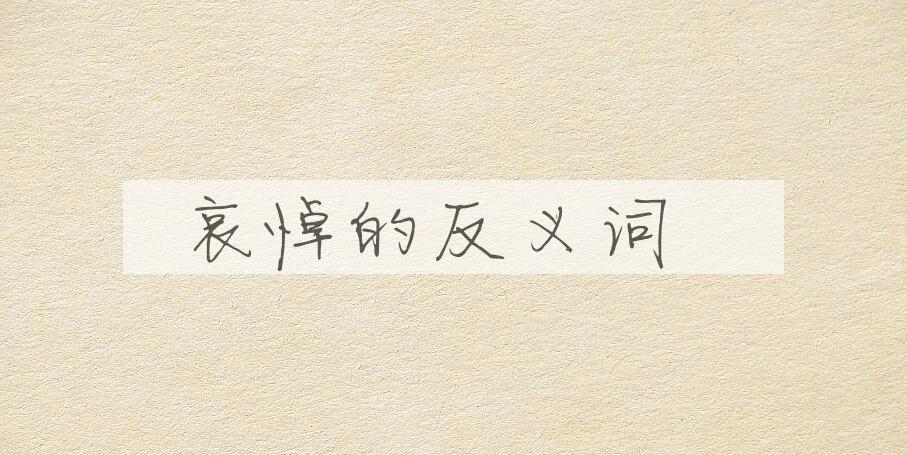 哀悼的反义词